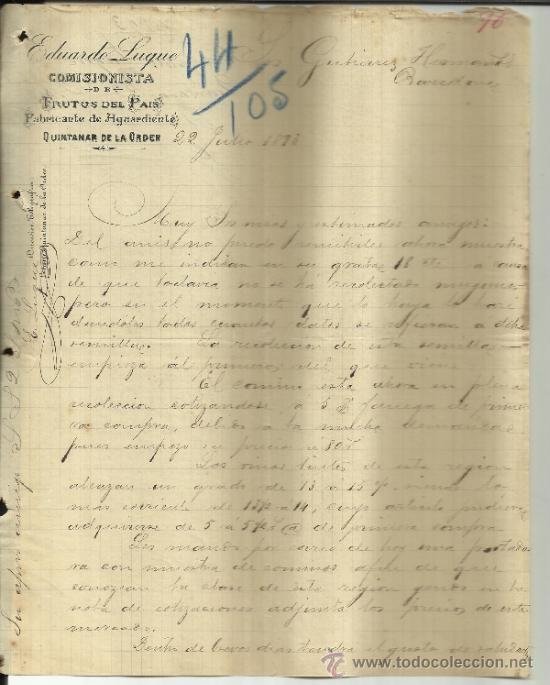 96
Eduardo Luque
COMISIONISTA
DE
FRUTOS DEL PAIS
Fabricante de Aguardiente
QUINTANAR DE LA ORDEN
44/105
Gutierrez Hermanos
Barcelona
22 Julio 1898
Muy Sres mios y estimados amigos:
Del anis no puedo remitirles ahora muestra
como me indican en su grata 18 causa
de que todavia no se há recolectado ninguno
pero en el momento que lo haya lo haré
dandoles todos cuantos datos se refieran a dicha
semilla. La recoleccion de esta semilla
empieza al primeros del que viene.
El comino está ahora en plena
recoleccion cotizandose á 5 fanega de prime-
ra compra, debido a la mucha demanda
pues empezo su precio a 30
Los vinos tintos de esta region
alcanzan un grado de 13 á 15 º, siendo lo
mas corriente de á 14, cuyo articulo podria
adquirirse de 5 á @ de primera compra
Les mando por correo de hoy una
con muestra de cominos afin de que
conozcan la clase de esta region yendo en la
nota de cotizaciones adjunta los precios de este
mercado.
Dentro de breves dias tendra el gusto de saludar
Direccion Telegrafica
Luque Quintanar de la Orden
E. Luque
Su afmo amigo S. S.
www.todocoleccion.net